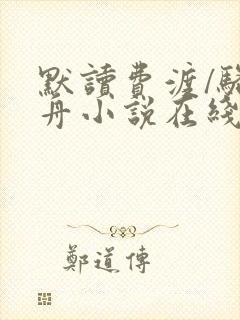 默讀費渡/駱
丹小說在綫
鄭道傳